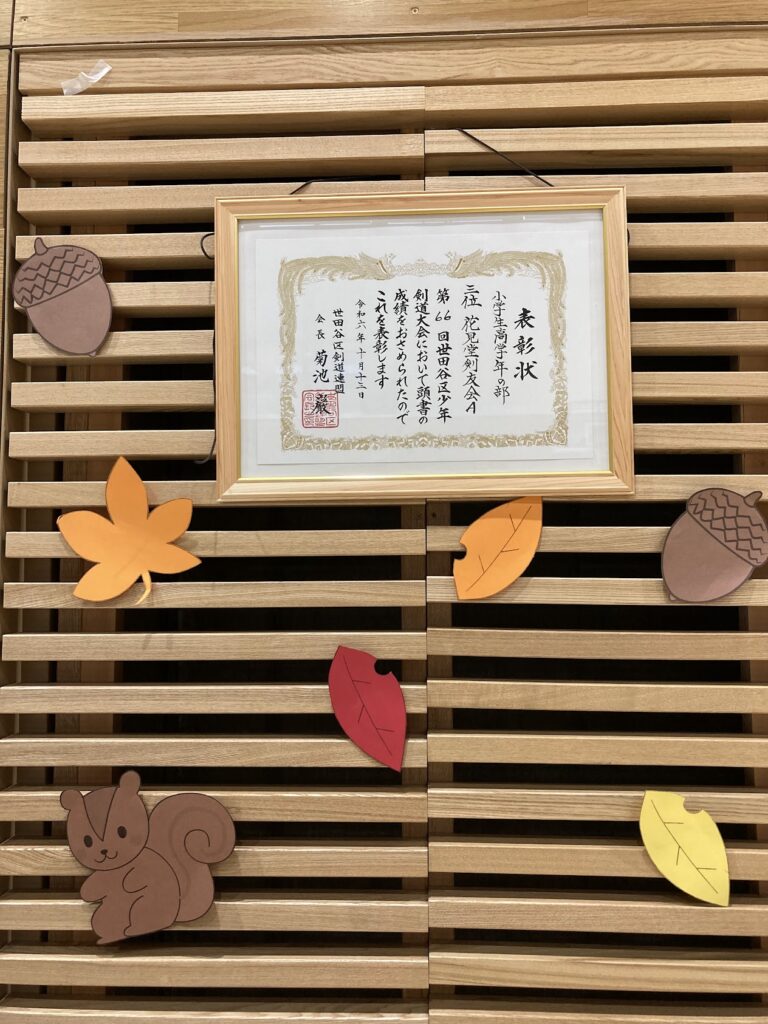 表彰状
小学生高学年の部
三位 花見堂剣友会A
第66回世田谷区少年
剣道大会において頭書の
成績をおさめられたので
これを表彰します
令和六年十月十三日
世田谷区剣道連盟
会長 菊池 巖